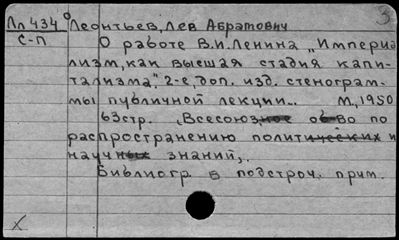 Лл 434 Леонтьев, Лев Абратович 3
С-П О работе В.И. Ленина „Империа
лизм, как высшая стадия капи-
тализма". 2-е, доп. изд. стенограм-
мы публичной лекции... М., 1950
63стр. (Всесоюзное об-во по
распространению политических и
научных знаний).
Библиогр в подстроч. прим.
X